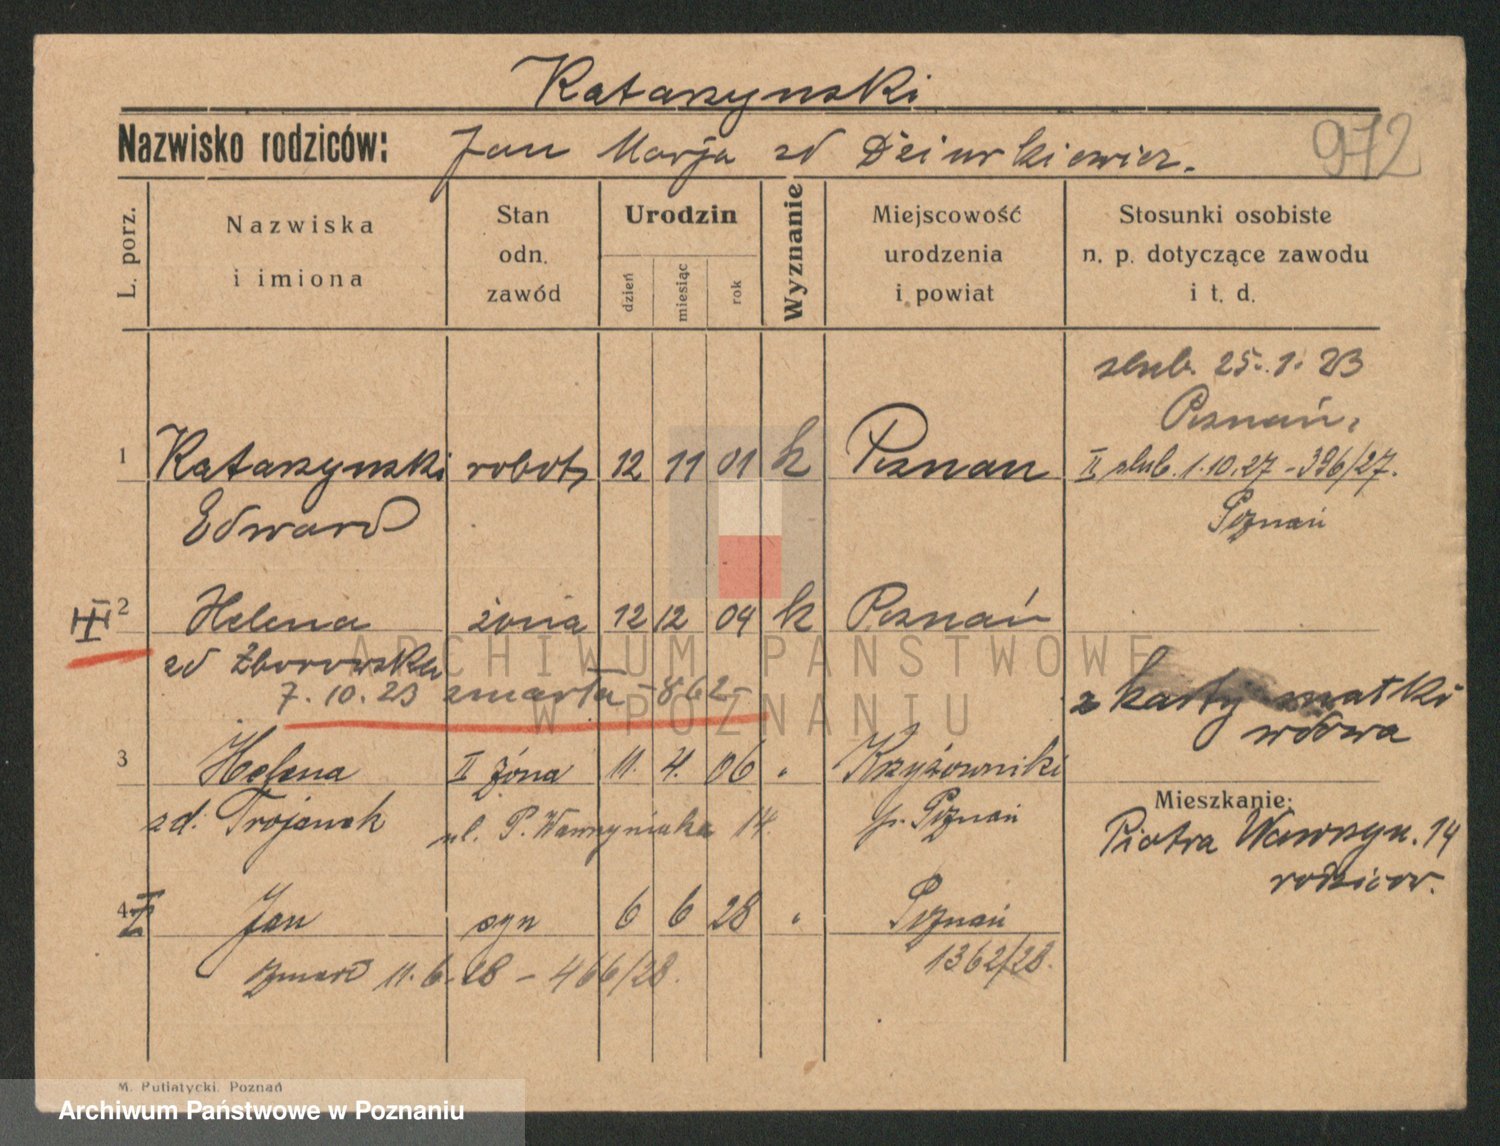 Katarzynski
Nazwisko rodziców: Jan Marja zd Dziurkiewicz.
972
L. porz.
Nazwiska i imiona
Stan odn. zawód
Urodzin
dzień
miesiąc
rok
Wyznanie
Miejscowość urodzenia i powiat
Stosunki osobiste n. p. dotyczące zawodu i t. d.
slub. 25.1.23
Poznań,
1 Katarzynski robot, 12 11 01 k Poznan II slub. 1.10.27 - 396/27.
Edward Poznań
III 2 Helena żona 12 12 04 k Poznań
zd Zborowska
7.10.23 zmarła - 862 -
z karty matki
wdowa
3 Helena II żona 11. 4. 06 " Krzyżowniki
zd. Trojanek ul. P. Wawrzyniaka 14. p. Poznań
Mieszkanie:
Piotra Wawrzyn. 14
rodzicow.
4 I Jan syn 6 6 28 " Poznań
zmarł 11.6.28 - 466/28. 1362/28.
ARCHIWUM PAŃSTWOWE
W POZNANIU
M. Putiatycki, Poznań
Archiwum Państwowe w Poznaniu